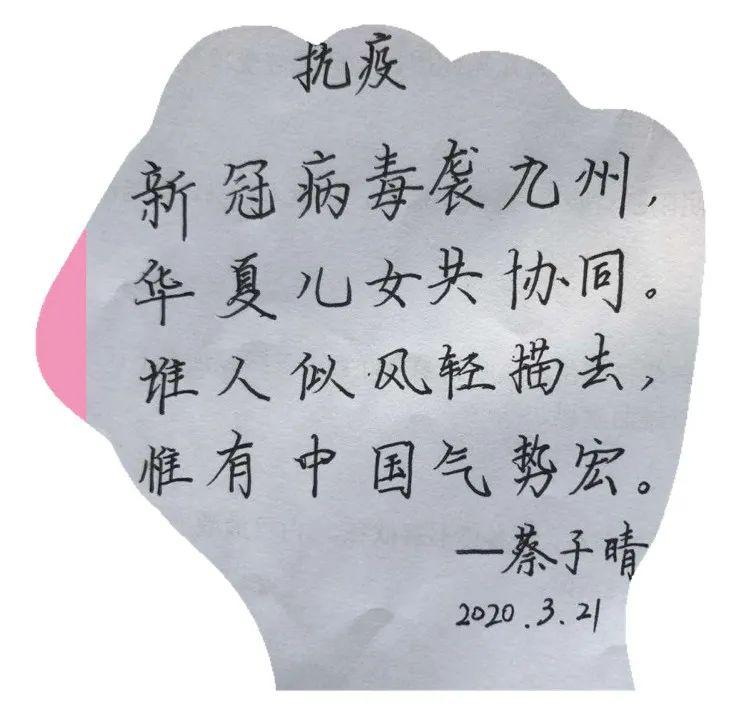 抗疫
新冠病毒袭九州，
华夏儿女共协同。
堆人似风轻描去，
惟有中国气势宏。
—蔡子晴
2020.3.21